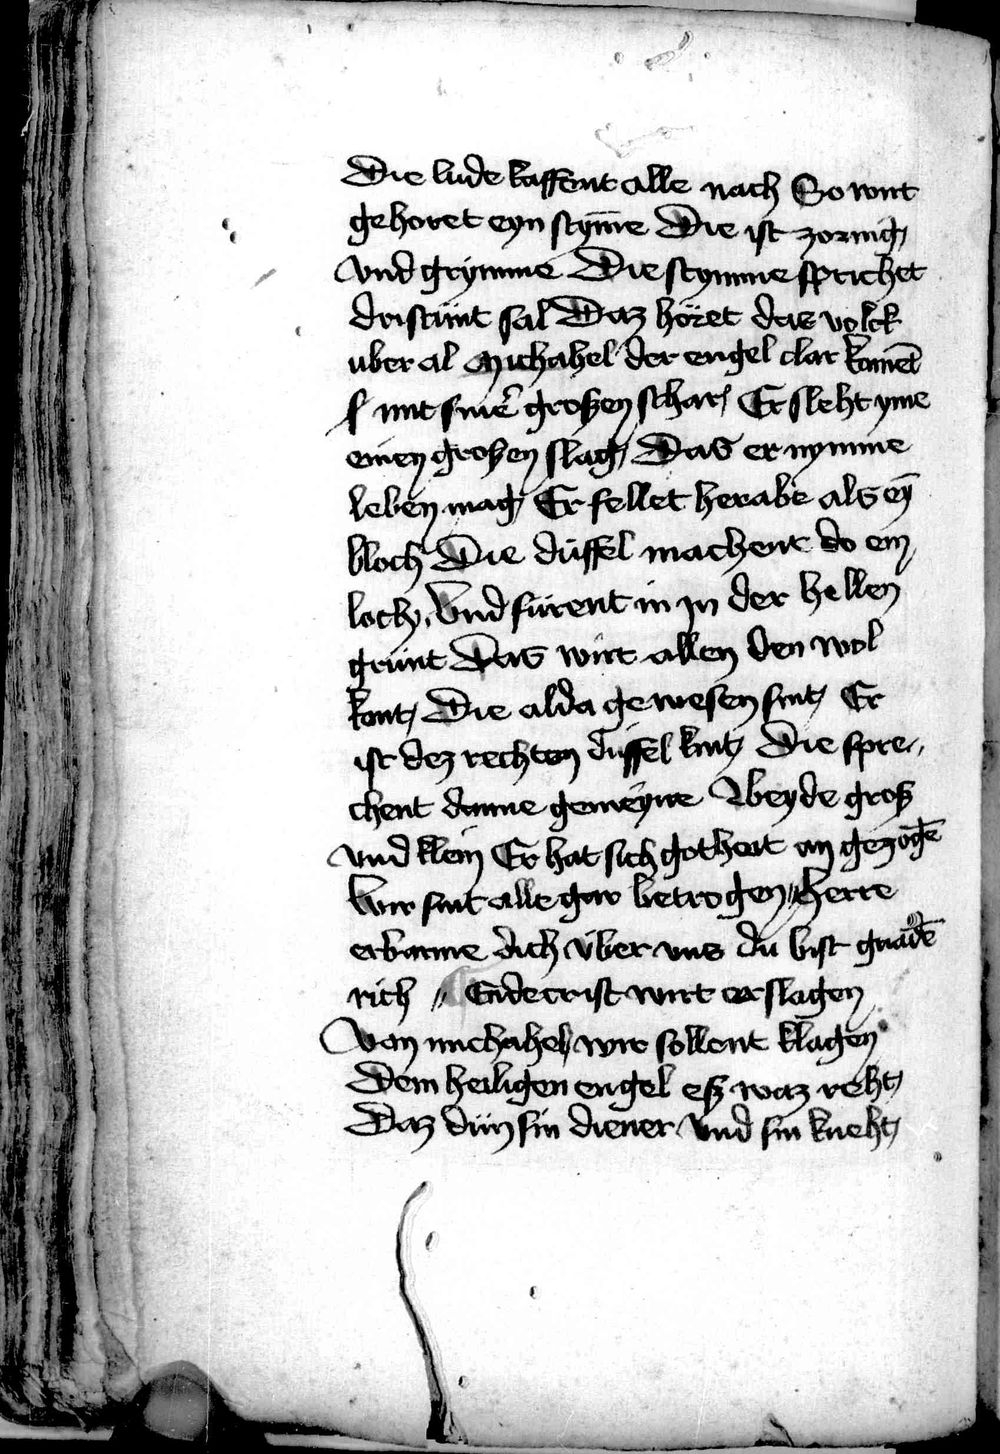 Die lude kaffent alle nach So wirt
gehoret eyn stym̄e Die ist zornig
vnd grymme Die stymme sprichet
dristünt sal Daz höret das volck
uber al Michahel der engel clar komet
mit sinē großen schar Er sleht yme
einen großen slag Das er nymme
leben mag Er fellet herabe als eȳ
bloch Die düffel machent do ein
loch Vnd fürent in jn der hellen
grünt Das wirt allen den wol
kont Die alda gewesen sint Er
ist dez rechten düffel kint Die spre//
chent danne gemeyne Beyde groß
vnd klein Er hat sich gotheit an gezogē
Wir sint alle gar betrogen // Herre
erbarme dich über vns du bist gnadē
rich // Endecrist wirt erslagen
Von michahel wir sollent klagen
Dem heiligen engel eß waz reht
Daz dün sin diener Vnd sin kneht